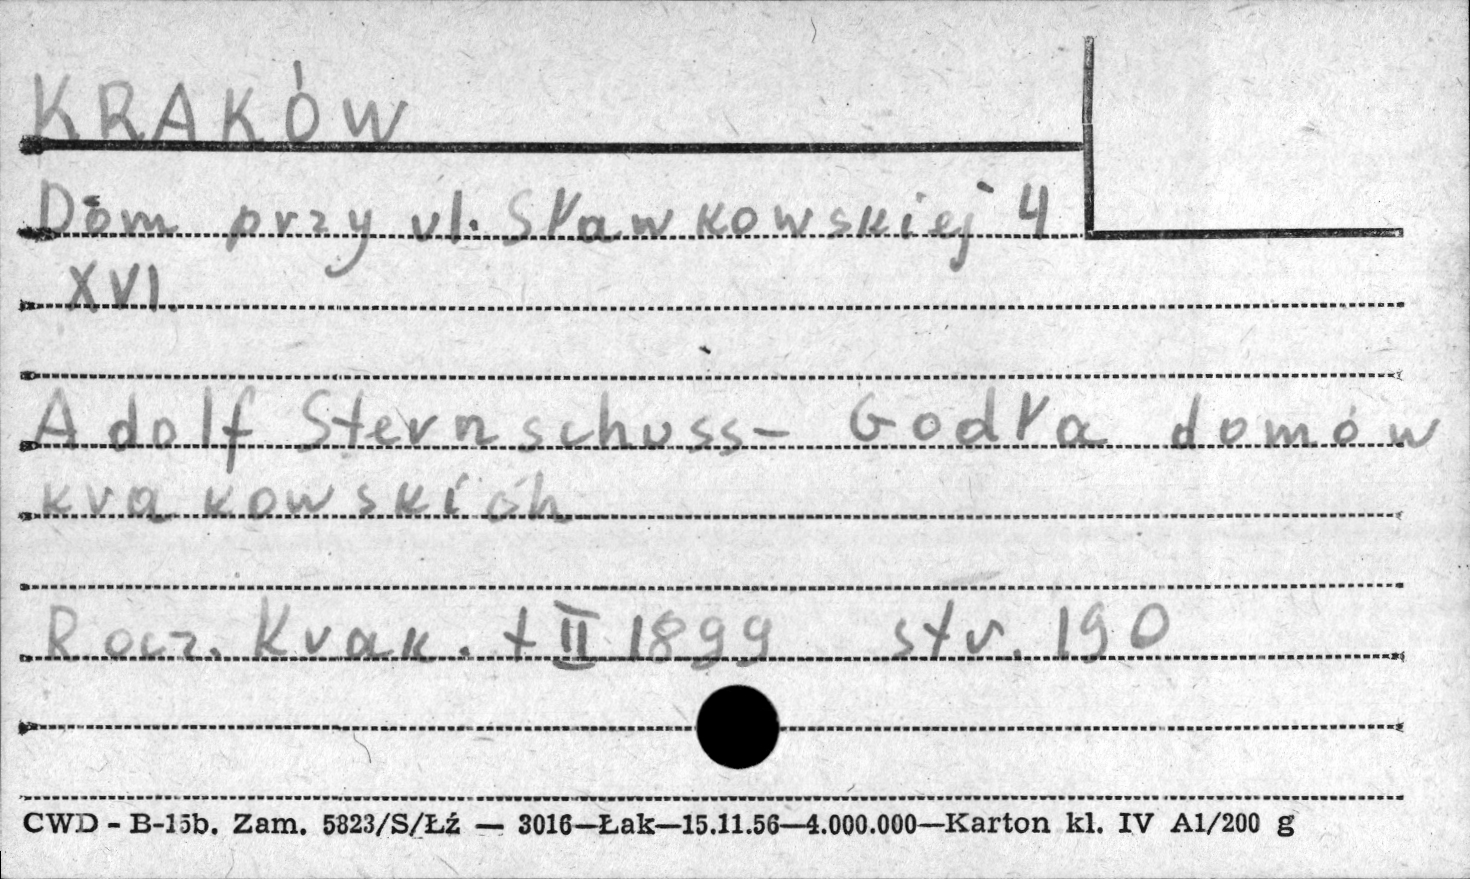 KRAKÓW
Dom przy ul. Sławkowskiej 4
XVI.
Adolf Sternschuss - Godła domów
krakowskich
Rocz. Krak. t II 1899 str. 190
CWD - B-15b. Zam. 5823/S/Łź — 3016—Łak—15.11.56—4.000.000—Karton kl. IV A1/200 g